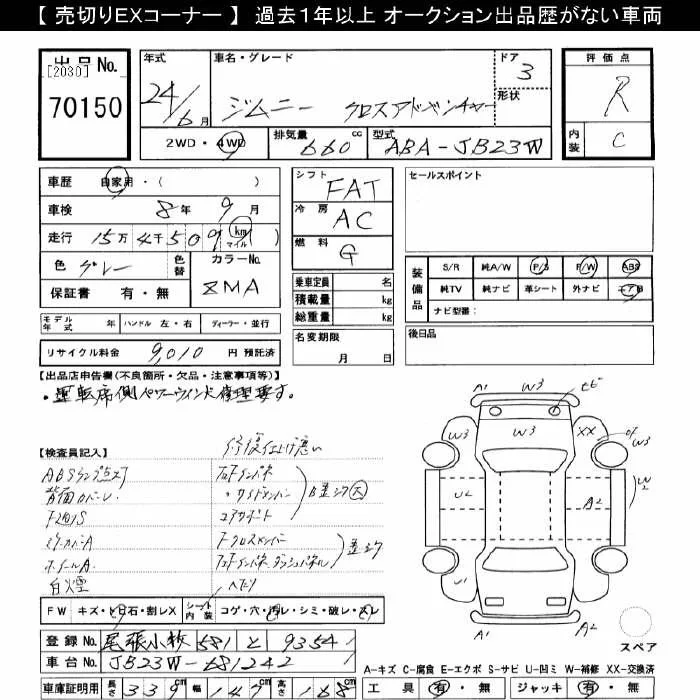 【 売切りEXコーナー 】 過去1年以上 オークション出品歴がない車両
出品 No.
[2030]
70150
年式 24/6月
車名・グレード
ジムニー クロスアドベンチャー
ドア 3
形状
2WD・4WD
排気量 660 cc
型式 ABA-JB23W
評価点
R
内装 C
車歴 自家用・( )
車検 8年 9月
走行 15万4千509 km マイル( )
色 グレー 色替 カラーNo. ZMA
保証書 有・無
シフト FAT
冷房 AC
燃料 G
乗車定員 名
積載量 kg
総重量 kg
名変期限
月 日
セールスポイント
装備品 S/R 純A/W P/S P/W ABS
純TV 純ナビ 革シート 外ナビ エアB
ナビ型番:
後日品
モデル年式 年 ハンドル 左・右 ディーラー・並行
リサイクル料金 9,010 円 預託済
【出品店申告欄(不良箇所・欠品・注意事項等)】
・運転席側パワーウインド修理要す。
【検査員記入】
修復仕上げ悪い
ABSランプ点灯
背面カバーレ
ミラーカバーA
ホイールA
白火煙
コアサポート
Fクロスメンバー
FW キズ・ヒ石・割レX シート内装 コゲ・穴・汚レ・シミ・破レ・スレ
登録 No. 尾張小牧 581 と 9354
車台 No. JB23W-681242
車庫証明用 長さ 339cm 幅 147cm 高さ 168cm
A1 W3 セビ
W3 W3 XX W3
U2 A2 W2
U1
A1 A1
スペア
A-キズ C-腐食 E-エクボ S-サビ U-凹ミ W-補修 XX-交換済
工具 有・無 ジャッキ 有・無